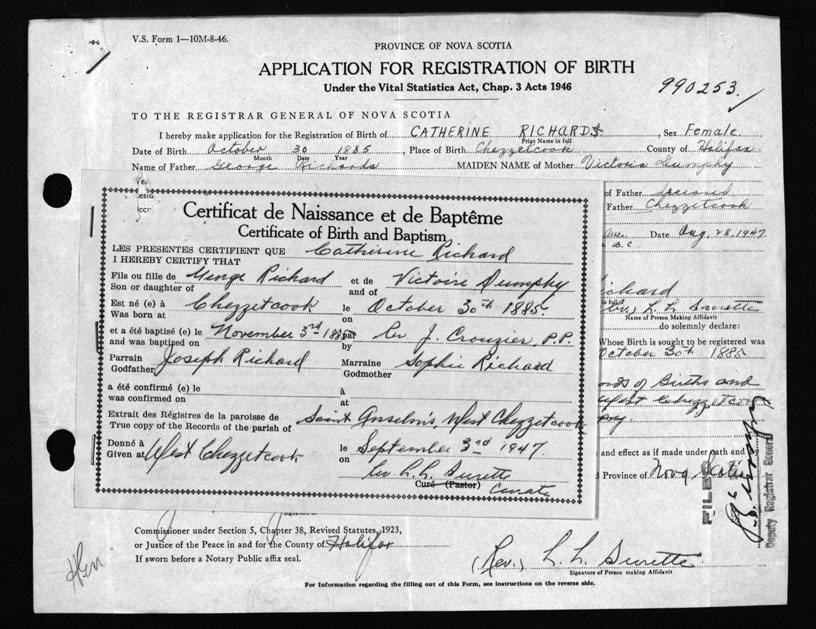 V.S. Form 1—10M-8-46.
PROVINCE OF NOVA SCOTIA
APPLICATION FOR REGISTRATION OF BIRTH
Under the Vital Statistics Act, Chap. 3 Acts 1946
990253.
TO THE REGISTRAR GENERAL OF NOVA SCOTIA
I hereby make application for the Registration of Birth of CATHERINE RICHARDS, Sex Female
Print Name in full
Date of Birth October 30 1885, Place of Birth Chezzetcook County of Halifax
Month Date Year
Name of Father George Richards MAIDEN NAME of Mother Victoria Dumphy
of Father
Father Chezzetcook
Date Aug 28, 1947
B.C
Certificat de Naissance et de Baptême
Certificate of Birth and Baptism
LES PRESENTES CERTIFIENT QUE
I HEREBY CERTIFY THAT Catherine Richard
Fils ou fille de George Richard et de Victoire Dumphy
Son or daughter of and of
Est né (e) à Chezzetcook le October 30th 1885
Was born at on
et a été baptisé (e) le November 3rd 1885 par Rev. J. Crouzier, P.P.
and was baptised on by
Parrain Joseph Richard Marraine Sophie Richard
Godfather Godmother
a été confirmé (e) le à
was confirmed on at
Extrait des Régistres de la paroisse de Saint Anselm's West Chezzetcook
True copy of the Records of the parish of
Donné à West Chezzetcook le September 3rd 1947
Given at on
Rev. L. L. Surette
Curé (Pastor) Curate
L. L. Surette
Name of Person Making Affidavit
do solemnly declare:
Whose Birth is sought to be registered was
October 30th 1885
Births and
West Chezzetcook
and effect as if made under oath and
Province of Nova Scotia
FILED
Deputy Registrar General
Commissioner under Section 5, Chapter 38, Revised Statutes, 1923,
or Justice of the Peace in and for the County of Halifax
If sworn before a Notary Public affix seal.
(Rev.) L. L. Surette
Signature of Person making Affidavit
For Information regarding the filling out of this Form, see instructions on the reverse side.